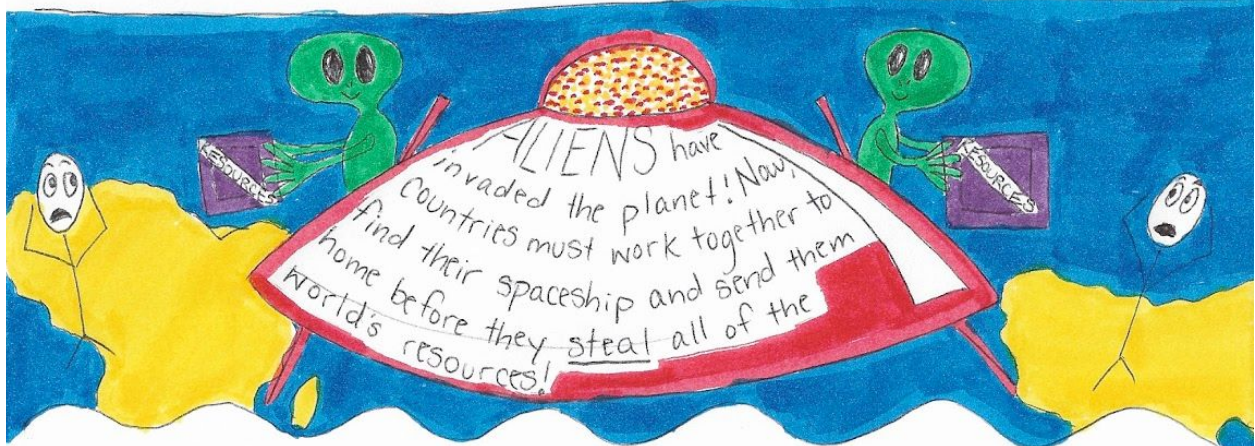 RESOURCES
RESOURCES
ALIENS have
invaded the planet! Now,
countries must work together to
find their spaceship and send them
home before they steal all of the
world's resources!